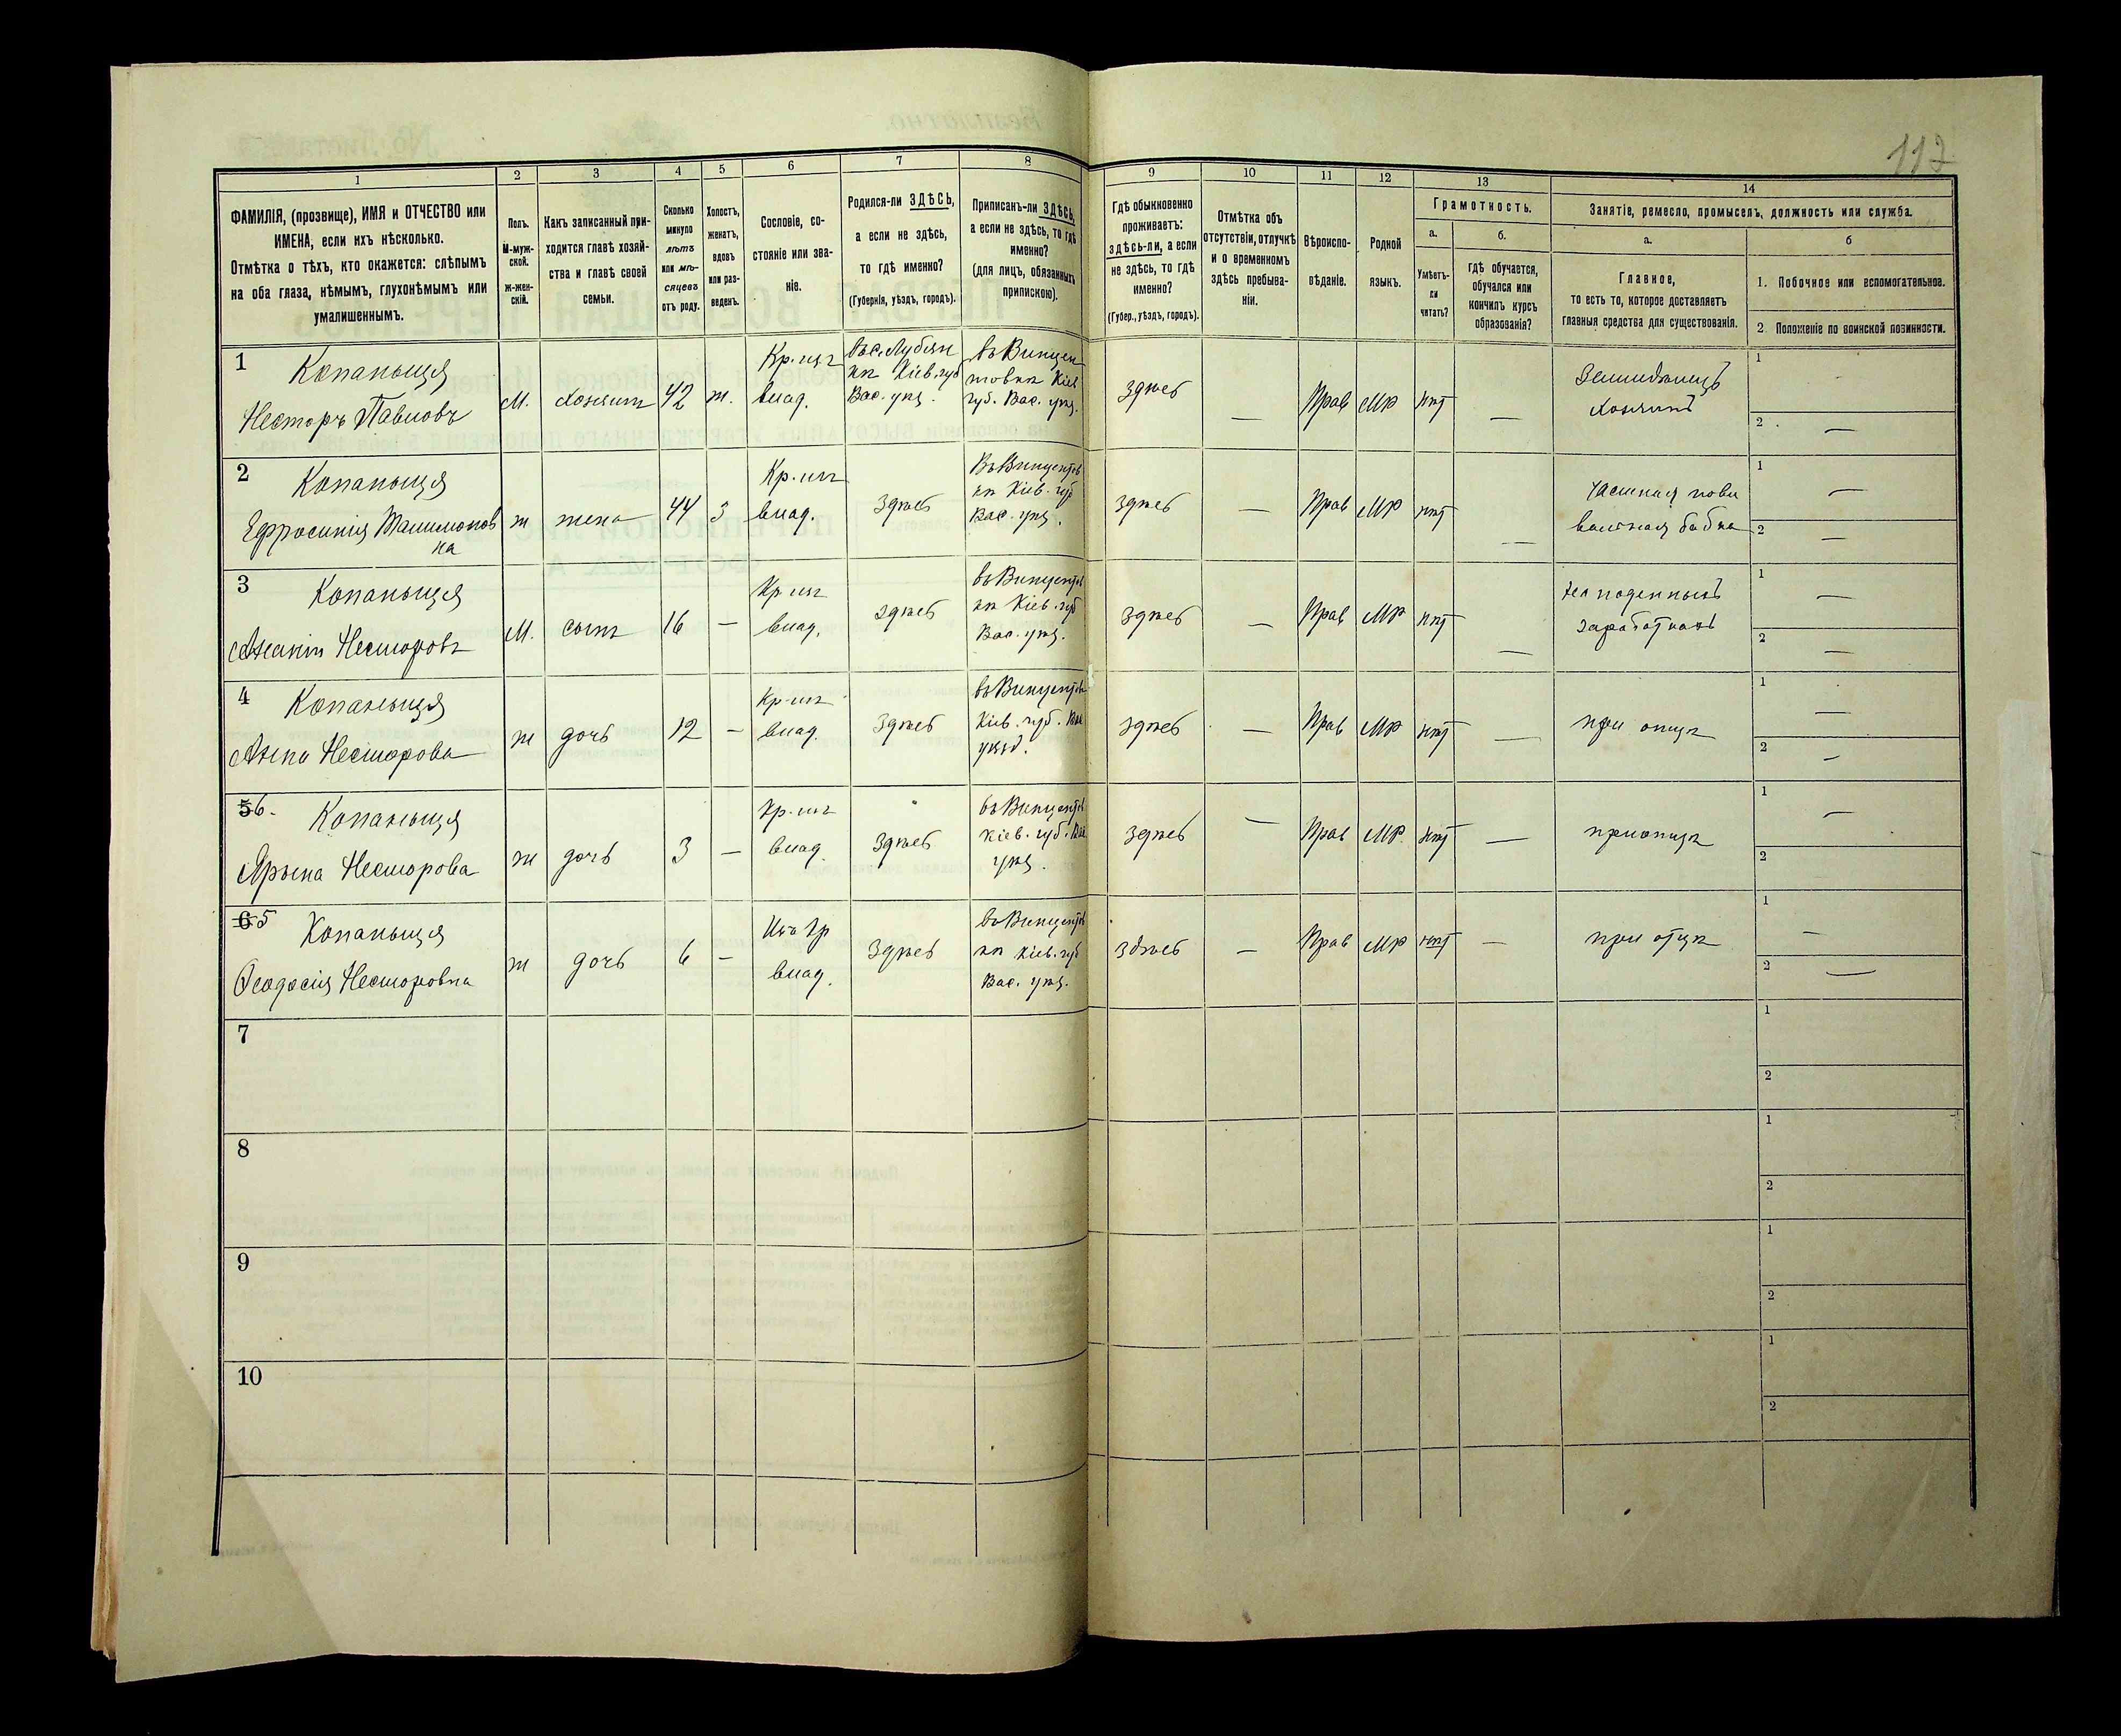 117
1
2
3
4
5
6
7
8
9
10
11
12
13
14
ФАМИЛІЯ, (прозвище), ИМЯ и ОТЧЕСТВО или
ИМЕНА, если ихъ нѣсколько.
Отмѣтка о тѣхъ, кто окажется: слѣпымъ
на оба глаза, нѣмымъ, глухонѣмымъ или
умалишеннымъ.
Полъ.
М-муж-
ской.
ж-жен-
скій.
Какъ записанный при-
ходится главѣ хозяй-
ства и главѣ своей
семьи.
Сколько
минуло
лѣтъ
или мѣ-
сяцевъ
отъ роду.
Холостъ,
женатъ,
вдовъ
или раз-
веденъ.
Сословіе, со-
стояніе или зва-
ніе.
Родился-ли ЗДѢСЬ,
а если не здѣсь,
то гдѣ именно?
(Губернія, уѣздъ, городъ).
Приписанъ-ли ЗДѢСЬ,
а если не здѣсь, то гдѣ
именно?
(для лицъ, обязанныхъ
припискою).
Гдѣ обыкновенно
проживаетъ:
здѣсь-ли, а если
не здѣсь, то гдѣ
именно?
(Губер., уѣздъ, городъ).
Отмѣтка объ
отсутствіи, отлучкѣ
и о временномъ
здѣсь пребыва-
ніи.
Вѣроиспо-
вѣданіе.
Родной
языкъ.
Грамотность.
а.
Умѣетъ-
ли
читать?
б.
Гдѣ обучается,
обучался или
кончилъ курсъ
образованія?
Занятіе, ремесло, промыселъ, должность или служба.
а.
Главное,
то есть то, которое доставляетъ
главныя средства для существованія.
б
1. Побочное или вспомогательное.
2. Положеніе по воинской повинности.
1
Копаныця
Несторъ Павловъ
М.
Хозяинъ
42
ж.
Кр. изъ
влад.
въ с. Лубян
кѣ Кіев. губ
Вас. уѣз.
въ Винцен
товкѣ Кіев
губ. Вас. уѣз.
здѣсь
—
Прав
МР
нѣт
—
Земледѣлецъ
Хозяинъ
1
2
—
2
Копаныця
Ефросинія
на
ж
жена
44
З
Кр. изъ
влад.
здѣсь
Въ Винцентов
кѣ Кіев. губ
Вас. уѣз.
здѣсь
—
Прав
МР
нѣт
—
пови
вальная бабка
1
—
2
—
3
Копаныця
Несторовъ
М.
сынъ
16
—
Кр изъ
влад.
здѣсь
въ Винцентов
кѣ Кіев. губ
Вас. уѣз.
здѣсь
—
Прав
МР
нѣт
—
на поденныхъ
заработкахъ
1
—
2
—
4
Копаныця
Анна Несторова
ж
дочь
12
—
Кр. изъ
влад.
здѣсь
въ Винцентов
Кіев. губ. Вас
уѣзд.
здѣсь
—
Прав
МР
нѣт
—
при отцѣ
1
—
2
—
5 6.
Копаныця
Арына Несторова
ж
дочь
3
—
Кр. изъ
влад.
здѣсь
въ Винцентов
Кіев. губ. Вас
уѣз.
здѣсь
—
Прав
МР.
нѣт
—
при отцѣ
1
—
2
6 5
Копаныця
Ѳеодосія Несторовна
ж
дочь
6
—
Изъ Кр
влад.
здѣсь
въ Винцентов
кѣ Кіев. губ
Вас. уѣз.
здѣсь
—
Прав
МР
нѣт
—
при отцѣ
1
—
2
—
7
1
2
8
1
2
9
1
2
10
1
2